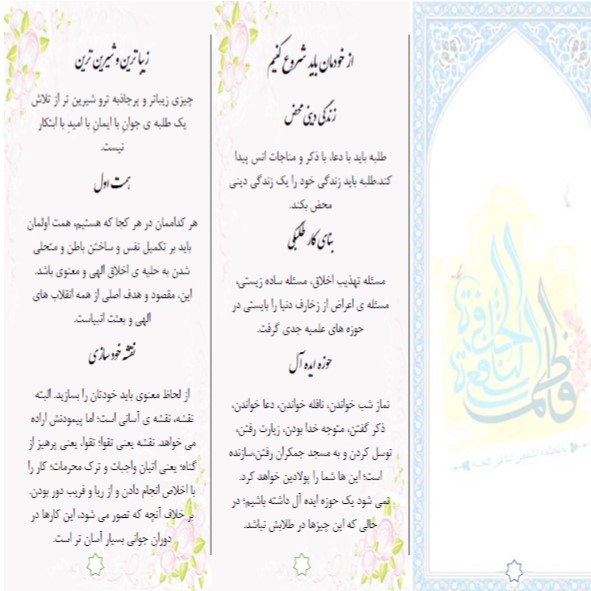 از خودمان باید شروع کنیم
زندگی دینی محض
طلبه باید با دعا، با ذکر و مناجات انس پیدا
کند.طلبه باید زندگی خود را یک زندگی دینی
محض بکند.
بنای کار طلبگی
مسئله تهذیب اخلاق، مسئله ساده زیستی،
مسئله ی اعراض از زخارف دنیا را بایستی در
حوزه های علمیه جدی گرفت.
حوزه ایده آل
نماز شب خواندن، نافله خواندن، دعا خواندن،
ذکر گفتن، متوجه خدا بودن، زیارت رفتن،
توسل کردن و به مسجد جمکران رفتن،سازنده
است؛ این ها شما را پولادین خواهد کرد.
نمی شود یک حوزه ایده آل داشته باشیم؛ در
حالی که این چیزها در طلابش نباشد.
زیباترین و شیرین ترین
چیزی زیباتر و پرجاذبه ترو شیرین تر از تلاش
یک طلبه ی جوانِ با ایمانِ با امیدِ با ابتکار
نیست.
همت اول
هر کداممان در هر کجا که هستیم، همت اولمان
باید بر تکمیل نفس و ساختن باطن و متحلی
شدن به حلیه ی اخلاق الهی و معنوی باشد.
این، مقصود و هدف اصلی از همه انقلاب های
الهی و بعثت انبیاست.
نقشه خودسازی
از لحاظ معنوی باید خودتان را بسازید. البته
نقشه، نقشه ی آسانی است؛ اما پیمودنش اراده
می خواهد. نقشه یعنی تقوا؛ تقوا، یعنی پرهیز از
گناه؛ یعنی اتیان واجبات و ترک محرمات؛ کار را
با اخلاص انجام دادن و از ریا و فریب دور بودن.
بر خلاف آنچه که تصور می شود، این کارها در
دوران جوانی بسیار آسان تر است.